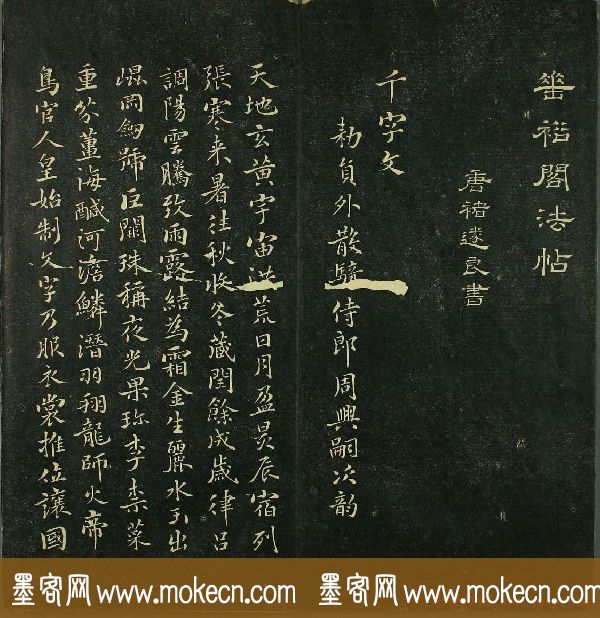 裕閣法帖
唐褚遂良書
千字文
勑員外散騎侍郎周興嗣次韵
天地玄黃宇宙洪荒日月盈昃辰宿列
張寒来暑往秋收冬藏閏餘成歲律吕
調陽雲騰致雨露結為霜金生麗水玉出
崐岡劒號巨闕珠稱夜光果珍李柰菜
重芥薑海醎河澹鱗潛羽翔龍師火帝
鳥官人皇始制文字乃服衣裳推位讓國
墨客网 www.mokecn.com 墨客网 www.mokecn.com